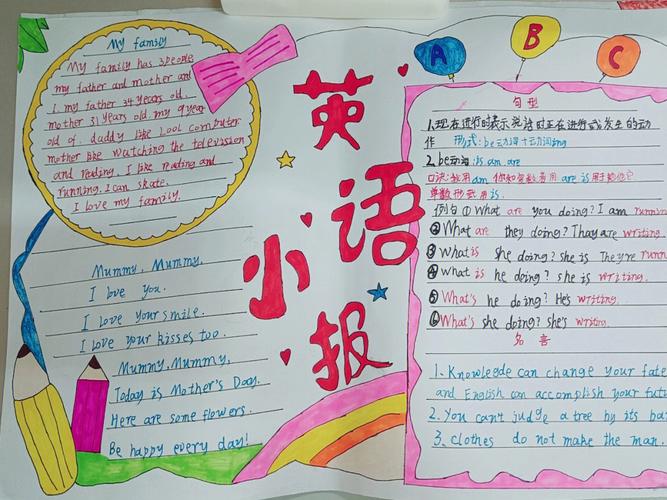 My family
My family has 3people
my father and mother and
I. my father 34 years old.
mother 31 years old. my 9year
old of. daddy like Lool computer
mother like watching the television
and reading. I like reading and
running. I can skate.
I love my family.
Mummy, Mummy,
I love you.
I love your smile.
I love your kisses too.
Mummy, Mummy,
Today is Mother's Day.
Here are some flowers.
Be happy every day!
英
语
小
报
A
B
C
句型
1.现在进行时表示说话时正在进行或发生的动
作 形式:be动词+动词ing
2.be动词:is.am.are
口诀:我用am 你和复数各用are is用于他她它
单数形式用is.
例句①What are you doing? I am running
②What are they doing? Thay are writing.
③What is she doing? she is They're runn
④what is he doing? she is writing.
⑤What's he doing? He's writing.
⑥What's she doing? she's writing.
名言
1. Knowlegde can change your fate
and English can accomplish your futu
2. You can't judge a tree by its ba
3. clothes do not make the man.